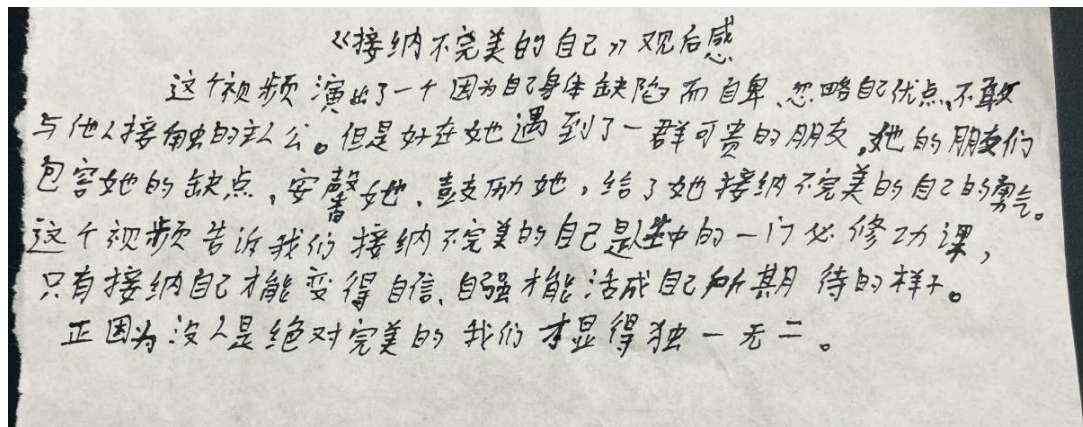 《接纳不完美的自己》观后感
这个视频演出了一个因为自己身体缺陷而自卑、忽略自己优点、不敢
与他人接触的主人公。但是好在她遇到了一群可贵的朋友,她的朋友们
包容她的缺点,安慰她、鼓励她,给了她接纳不完美的自己的勇气。
这个视频告诉我们接纳不完美的自己是人生中的一门必修功课,
只有接纳自己才能变得自信、自强才能活成自己所期待的样子。
正因为没人是绝对完美的我们才显得独一无二。